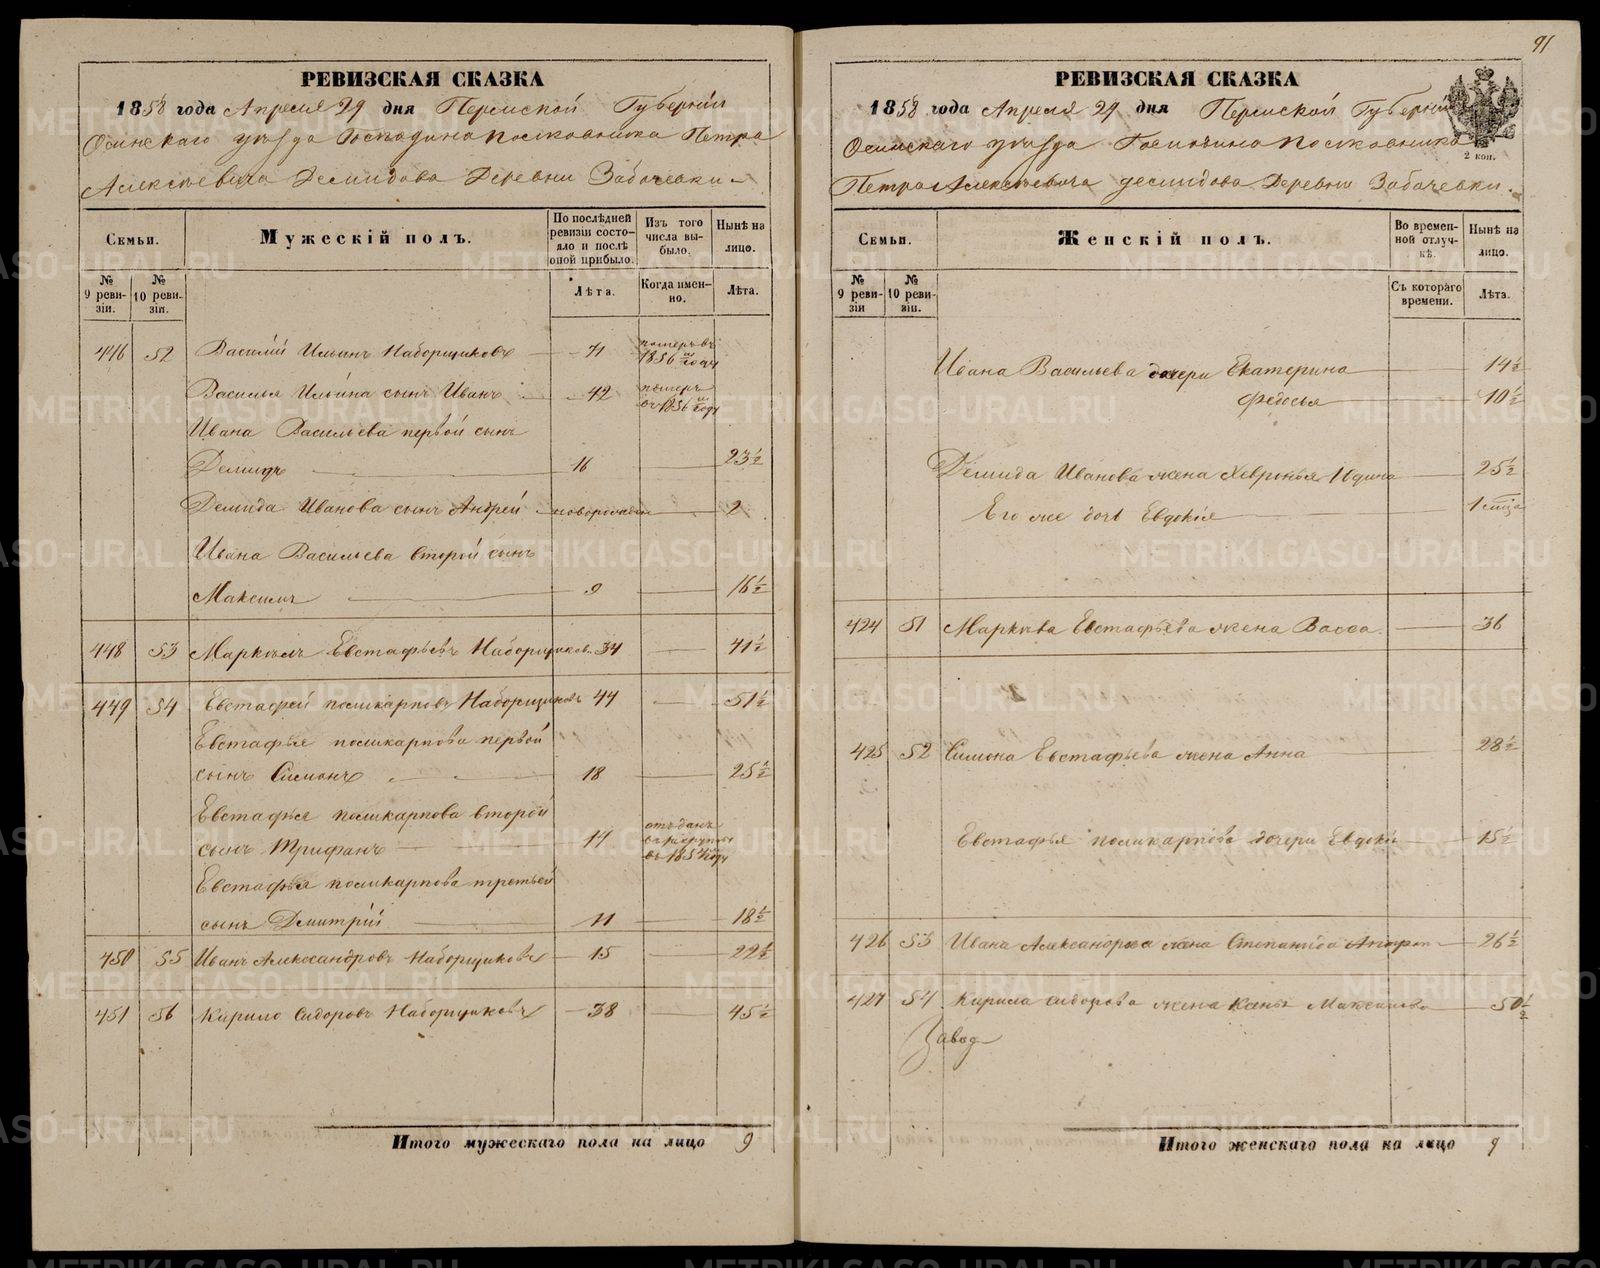 РЕВИЗСКАЯ СКАЗКА
1858 года Апреля 29 дня Пермской Губерніи
Осинскаго уѣзда Господина полковника Петра
Алексѣевича Демидова Деревни Забачевки
Семьи.
Мужескій полъ.
По послѣдней ревизіи состояло и послѣ оной прибыло.
Изъ того числа выбыло.
Нынѣ на лицо.
№ 9 ревизіи.
№ 10 ревизіи.
Лѣта.
Когда именно.
Лѣта.
446 52 Василій Ильинъ Наборщиковъ 71 померъ въ 1856 году
Василья Ильина сынъ Иванъ 42 померъ въ 1856 году
Ивана Васильева первой сынъ
Демидъ 16 23½
Демида Иванова сынъ Андрей новорожден 2
Ивана Васильева второй сынъ
Максимъ 9 16½
448 53 Маркелъ Евстафьевъ Наборщиков 34 41½
449 54 Евстафей поликарповъ Наборщиковъ 44 51½
Евстафья поликарпова первой
сынъ Симонъ 18 25½
Евстафья поликарпова второй
сынъ Трифанъ 14 отъданъ в рекруты въ 1854 году
Евстафья поликарпова третьей
сынъ Дмитрій 11 18½
450 55 Иванъ Александровъ Наборщиковъ 15 22½
451 56 Кирило Сидоровъ Наборщиковъ 38 45½
Итого мужескаго пола на лицо 9
91
РЕВИЗСКАЯ СКАЗКА
1858 года Апреля 29 дня Пермской Губерніи
2 коп.
Осинскаго уѣзда Господина полковника
Петра Алексѣевича Демидова Деревни Забачевки.
Семьи.
Женскій полъ.
Во временной отлучкѣ.
Нынѣ на лицо.
№ 9 ревизіи
№ 10 ревизіи.
Съ котораго времени.
Лѣта.
Ивана Васильева дочери Екатерина 14½
Федосья 10½
Демида Иванова жена Хевронья Юдина 25½
Его же дочь Евдокія 1 мѣся
424 51 Маркела Евстафьева жена Васса 36
425 52 Симона Евстафьева жена Анна 28½
Евстафья поликарпова дочери Евдокі 15½
426 53 Ивана Александрова жена Степанида 26½
427 54 Кирила Сидорова жена Максимова 50½
Завод
Итого женскаго пола на лицо 9
METRIKI.GASO-URAL.RU